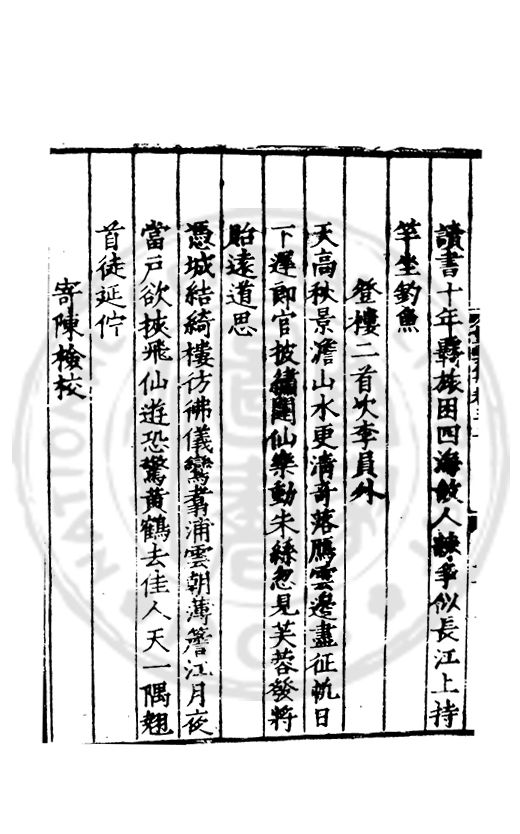 讀書十年羈旅困四海故人疎爭似長江上持
竿坐釣魚
登樓二首次李員外
天高秋景澹山水更清奇落鴈雲邊盡征帆日
下遲郎官披繡闥仙樂動朱絲忽見芙蓉發將
貽遠道思
憑城結綺樓彷彿儀鸞翥浦雲朝薄簷江月夜
當戸欲挾飛仙遊恐驚黄鶴去佳人天一隅翹
首徒延佇
寄陳檢校